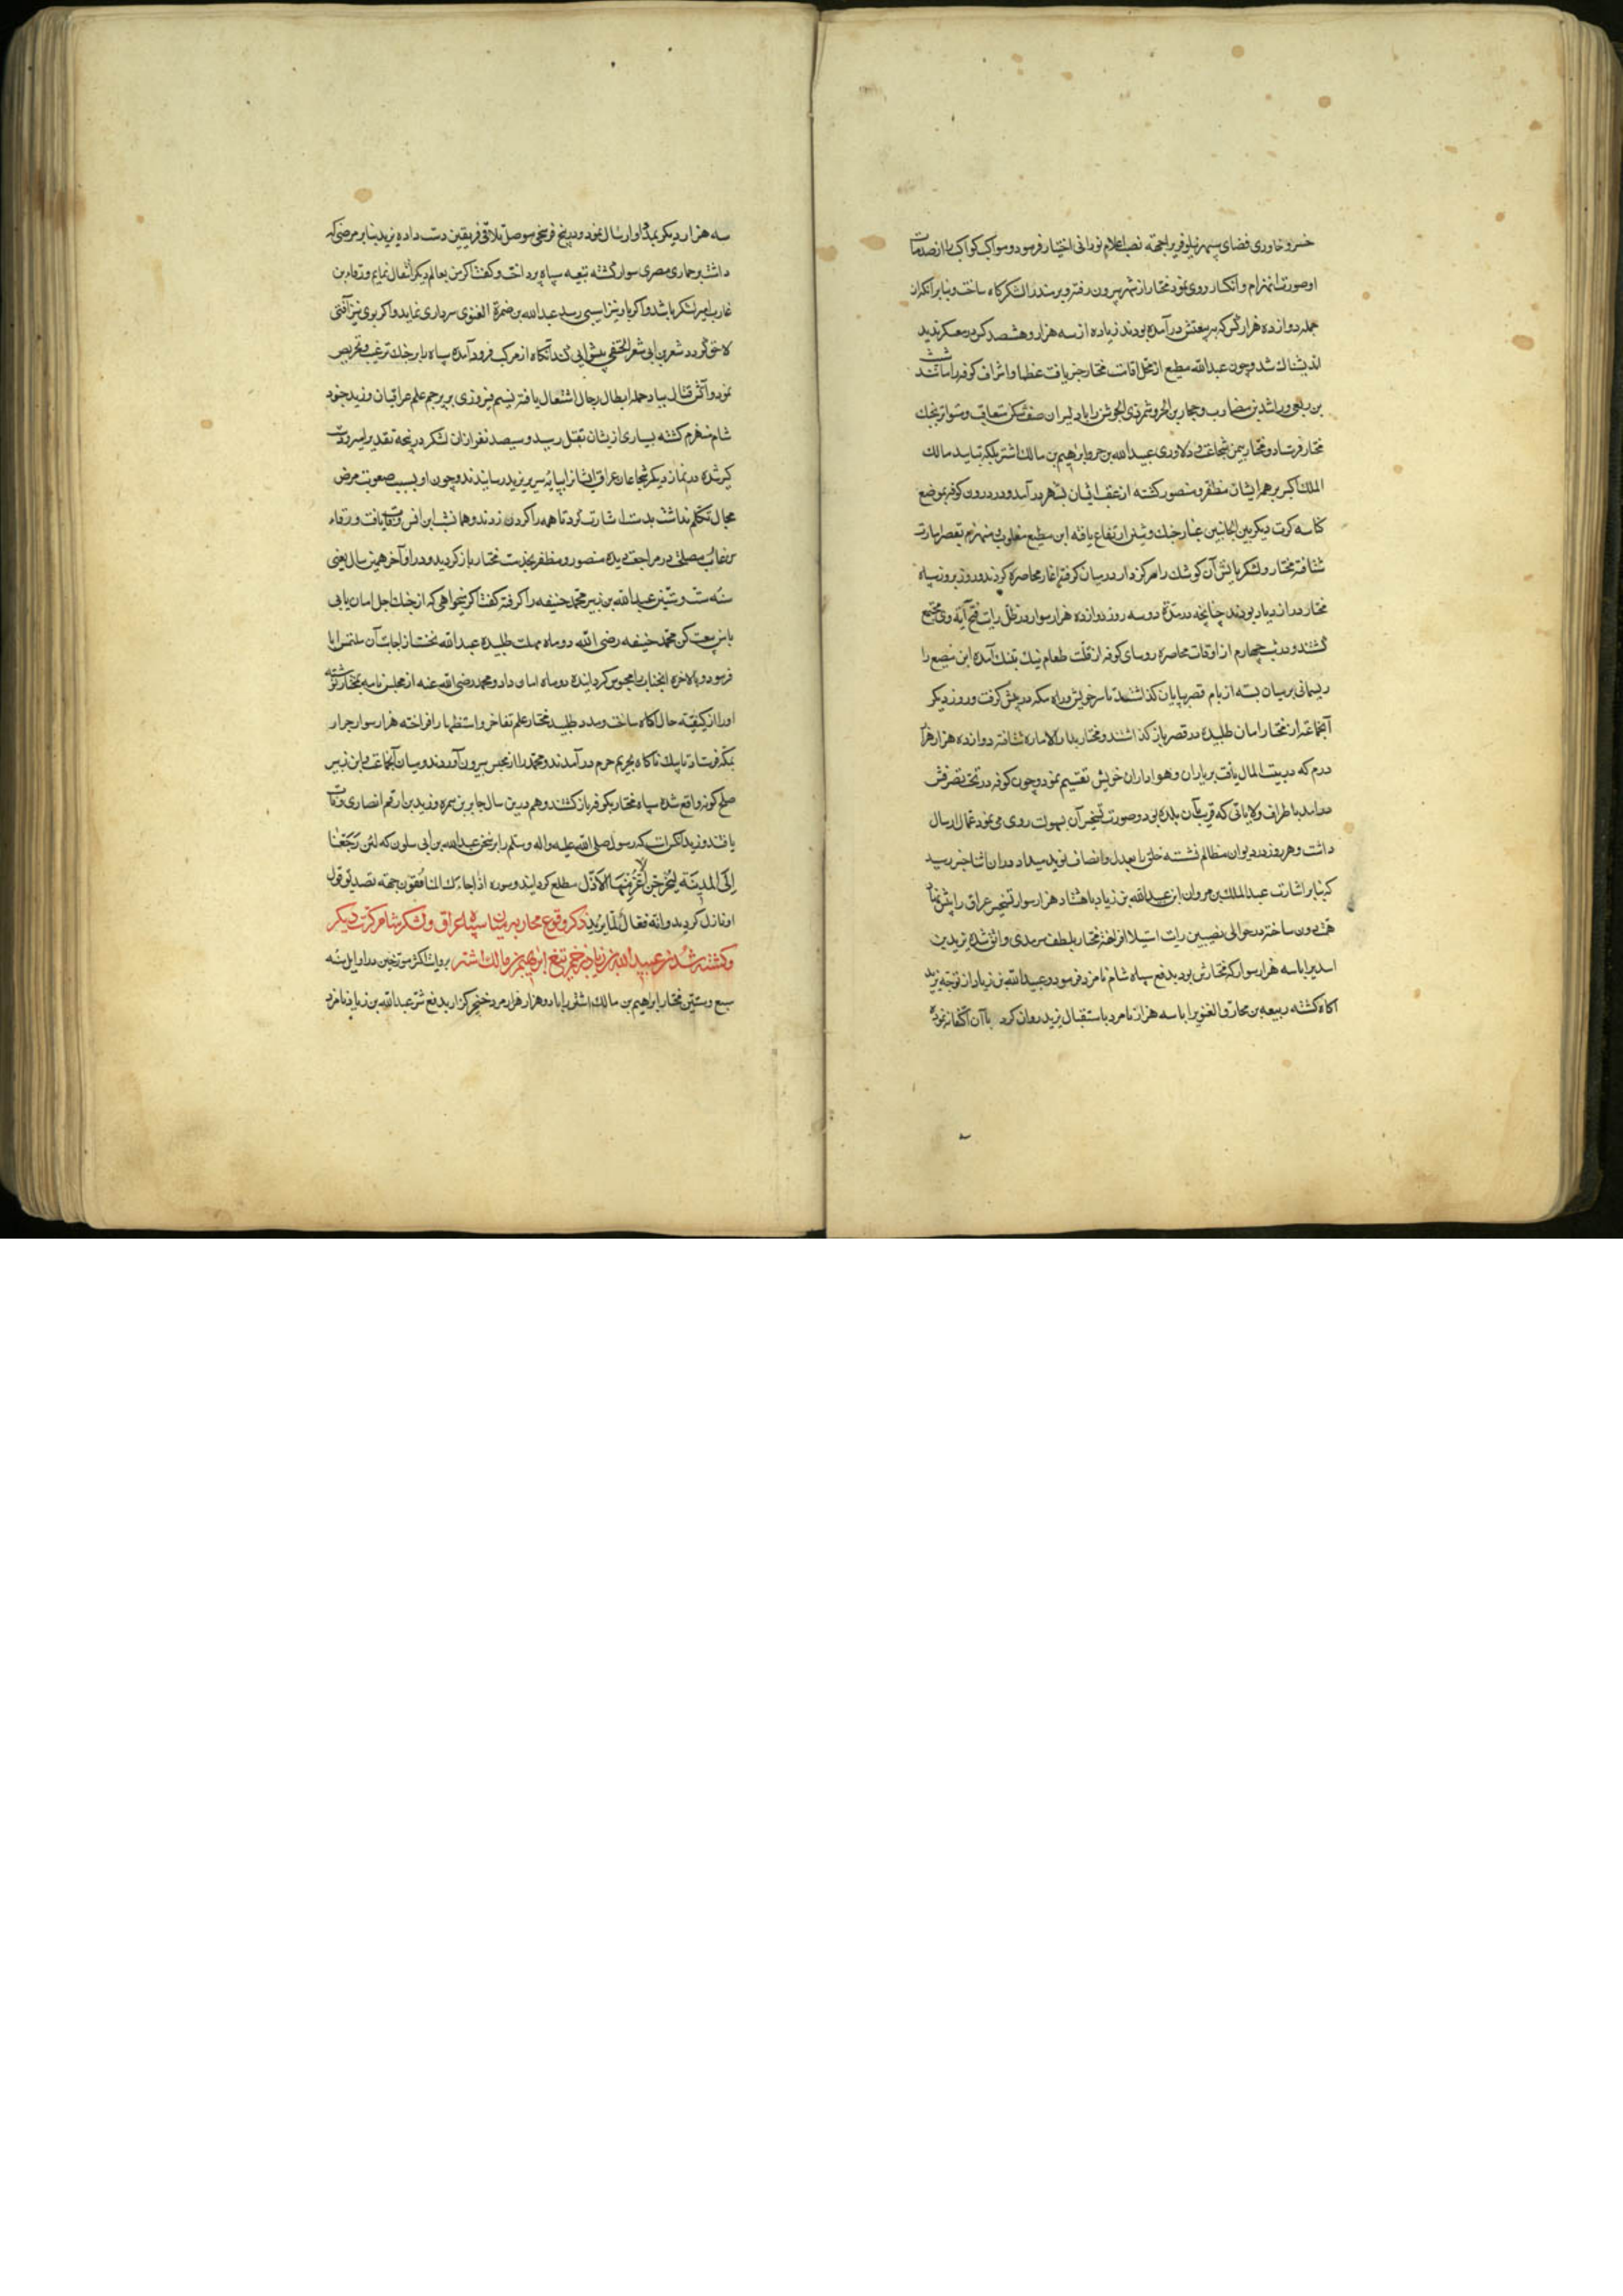 خسرو خاوری فضای سپهر نیلوفری را بجهة نصب اعلام نورانی اختیار فرمود و مواکب کواکب را از صدمات
او صورت انهزام و انکسار روی نمود مختار از شهر بیرون رفته و لشکرکاه ساخت و بنابر آنکه از
جمله دوازده هزار کس که ببیعتش درآمده بودند زیاده از سه هزار و هشتصد کس در معسکر ندید
اندیشناک شد و چون عبدالله مطیع از مخالفات مختار خبر یافت عظما و اشراف کوفه را مانند شبث
بن ربعی و راشد بن مضارب و حجار بن الحر و شمر ذی الجوشن را با دلیران صف شکن متعاقب و متواتر بجنک
مختار فرستاد و مختار بیمن شجاعت و دلاوری عبیدالله بن حر و ابراهیم بن مالک اشتر بلکه بتایید مالک
الملک اکبر بر همه ایشان مظفر و منصور کشته از عقب ایشان بشهر درآمد و در درون کوفه بموضع
کناسه کرت دیکر بین الجانبین غبار جنک و شین ارتفاع یافته ابن مطیع مغلوب و منهزم بقصر امارت
شتافت مختار و لشکریانش آن کوشک را مرکزوار درمیان کرفته آغاز محاصره کردند و روز بروز سپاه
مختار در ازدیاد بودند چنانچه در مدة دو سه روز دوازده هزار سوار در ظل رایت فتح آیة وی مجتمع
کشتند و در شب چهارم از اوقات محاصره روسای کوفه از قلت طعام نیک بتنک آمده ابن مطیع را
ریسمانی بر میان بسته از بام قصر بپایان کذاشتند تا سر خویش و راه مکه در پیش کرفت و روز دیکر
آنجماعة از مختار امان طلبیده در قصر باز کذاشتند و مختار بدار الاماره شتافته دوازده هزار هزار
درم که در بیت المال یافت بر یاران و هواداران خویش تقسیم نمود و چون کوفه در تحت تصرفش
درآمد باطراف ولایاتی که قریب بآن بلده بود و صورت تسخیر آن بسهولت روی می نمود عمال ارسال
داشت و هر روز در دیوان مظالم نشسته خلق را بعدل و انصاف نوید میداد در آن اثنا خبر رسید
که بنابر اشارت عبدالملک بن مروان ابن عبیدالله بن زیاد با هشتاد هزار سوار تسخیر عراق را پیش نهاد
همت دون ساخته در حوالی نصیبین رایت استیلا افراخته مختار بلطف سرمدی واثق شده یزید بن
اسد را با سه هزار سوار که مختارش بود بدفع سپاه شام نامزد فرمود و عبیدالله بن زیاد از توجه یزید
آکاه کشته ربیعه بن مخارق الغنوی را با سه هزار نامرد باستقبال یزید روان کرد باآن اکتفا نه نموده
سه هزار دیکر بمدد او ارسال نمود و در پنج فرسخی موصل تلاقی فریقین دست داده یزید بنابر مرضی که
داشت بر حماری مصری سوار کشته بتعبیه سپاه پرداخت و کفت اکر من بعالم دیکر انتقال نمایم ورقاء بن
غارب امیر لشکر باشد و اکر باو نیز اسیبی رسد عبدالله بن ضمرة الغنوی سرداری نماید و اکر بوی نیز آفتی
لاحق کردد شعر بن ابی شعر الحنفی پیشوایی کند آنکاه از مرکب فرود آمده سپاه را بر جنک ترغیب و تحریص
نمود و آتش قتال بباد حمله ابطال رجال اشتعال یافته نسیم فیروزی بر پرچم علم عراقیان وزید جنود
شام منهزم کشته بسیاری از ایشان بقتل رسید و سیصد نفر از آن لشکر در پنجه تقدیر اسیر و دست
کیر شده در نماز دیکر شجاعان عراق ایشان را بپایه سریر یزید رسانیدند و چون او بسبب صعوبت مرض
مجال تکلم نداشت بدست اشارت کرد تا همه را کردن زدند و همان شب ابن انس وفات یافت و ورقاء
بن غارب مصلحت در مراجعت دیده منصور و مظفر بخدمت مختار باز کردید و در اواخر همین سال یعنی
سنه ست و ستین عبدالله بن زبیر محمد حنیفه را کرفته کفت اکر میخواهی که از چنک اجل امان یابی
با من بیعت کن محمد حنیفه رضی الله دو ماه مهلت طلبیده عبدالله نخست از اجابت آن ملتمس ابا
فرمود و بالاخره آنجناب را محبوس کردانیده دو ماه امان داد و محمد رضی الله عنه از مجلس نامه بمختار نوشته
او را از کیفیت حال آکاه ساخت و مدد طلبید مختار علم تفاخر و استظهار افراخته هزار سوار جرار
بمکه فرستاد تا بیک ناکاه بحریم حرم درآمدند و محمد را از محبس بیرون آوردند و میان آنجماعت و ابن زبیر
صلح کونه واقع شده سپاه مختار بکوفه باز کشتند و هم درین سال جابر بن سمره و زید بن ارقم انصاری وفات
یافتند و زید آنکس است که رسول صلی الله علیه واله وسلم را بر سخن عبدالله بن ابی سلول که لئن رجعنا
الی المدینة لیخرجن الاعز منها الاذل مطلع کردانید و سوره اذا جاءک المنافقون جهة تصدیق قول
او نازل کردید وانه فعال لما یرید ذکر وقوع محاربه میان سپاه عراق و لشکر شام کرت دیکر
و کشته شدن عبیدالله بن زیاد بزخم تیغ ابراهیم بن مالک اشتر بروایت اکثر مورخین در اوایل سنه
سبع وستین مختار ابراهیم بن مالک اشتر را با دوهزار هزار مرد خنجرکزار بدفع شر عبدالله بن زیاد نامزد